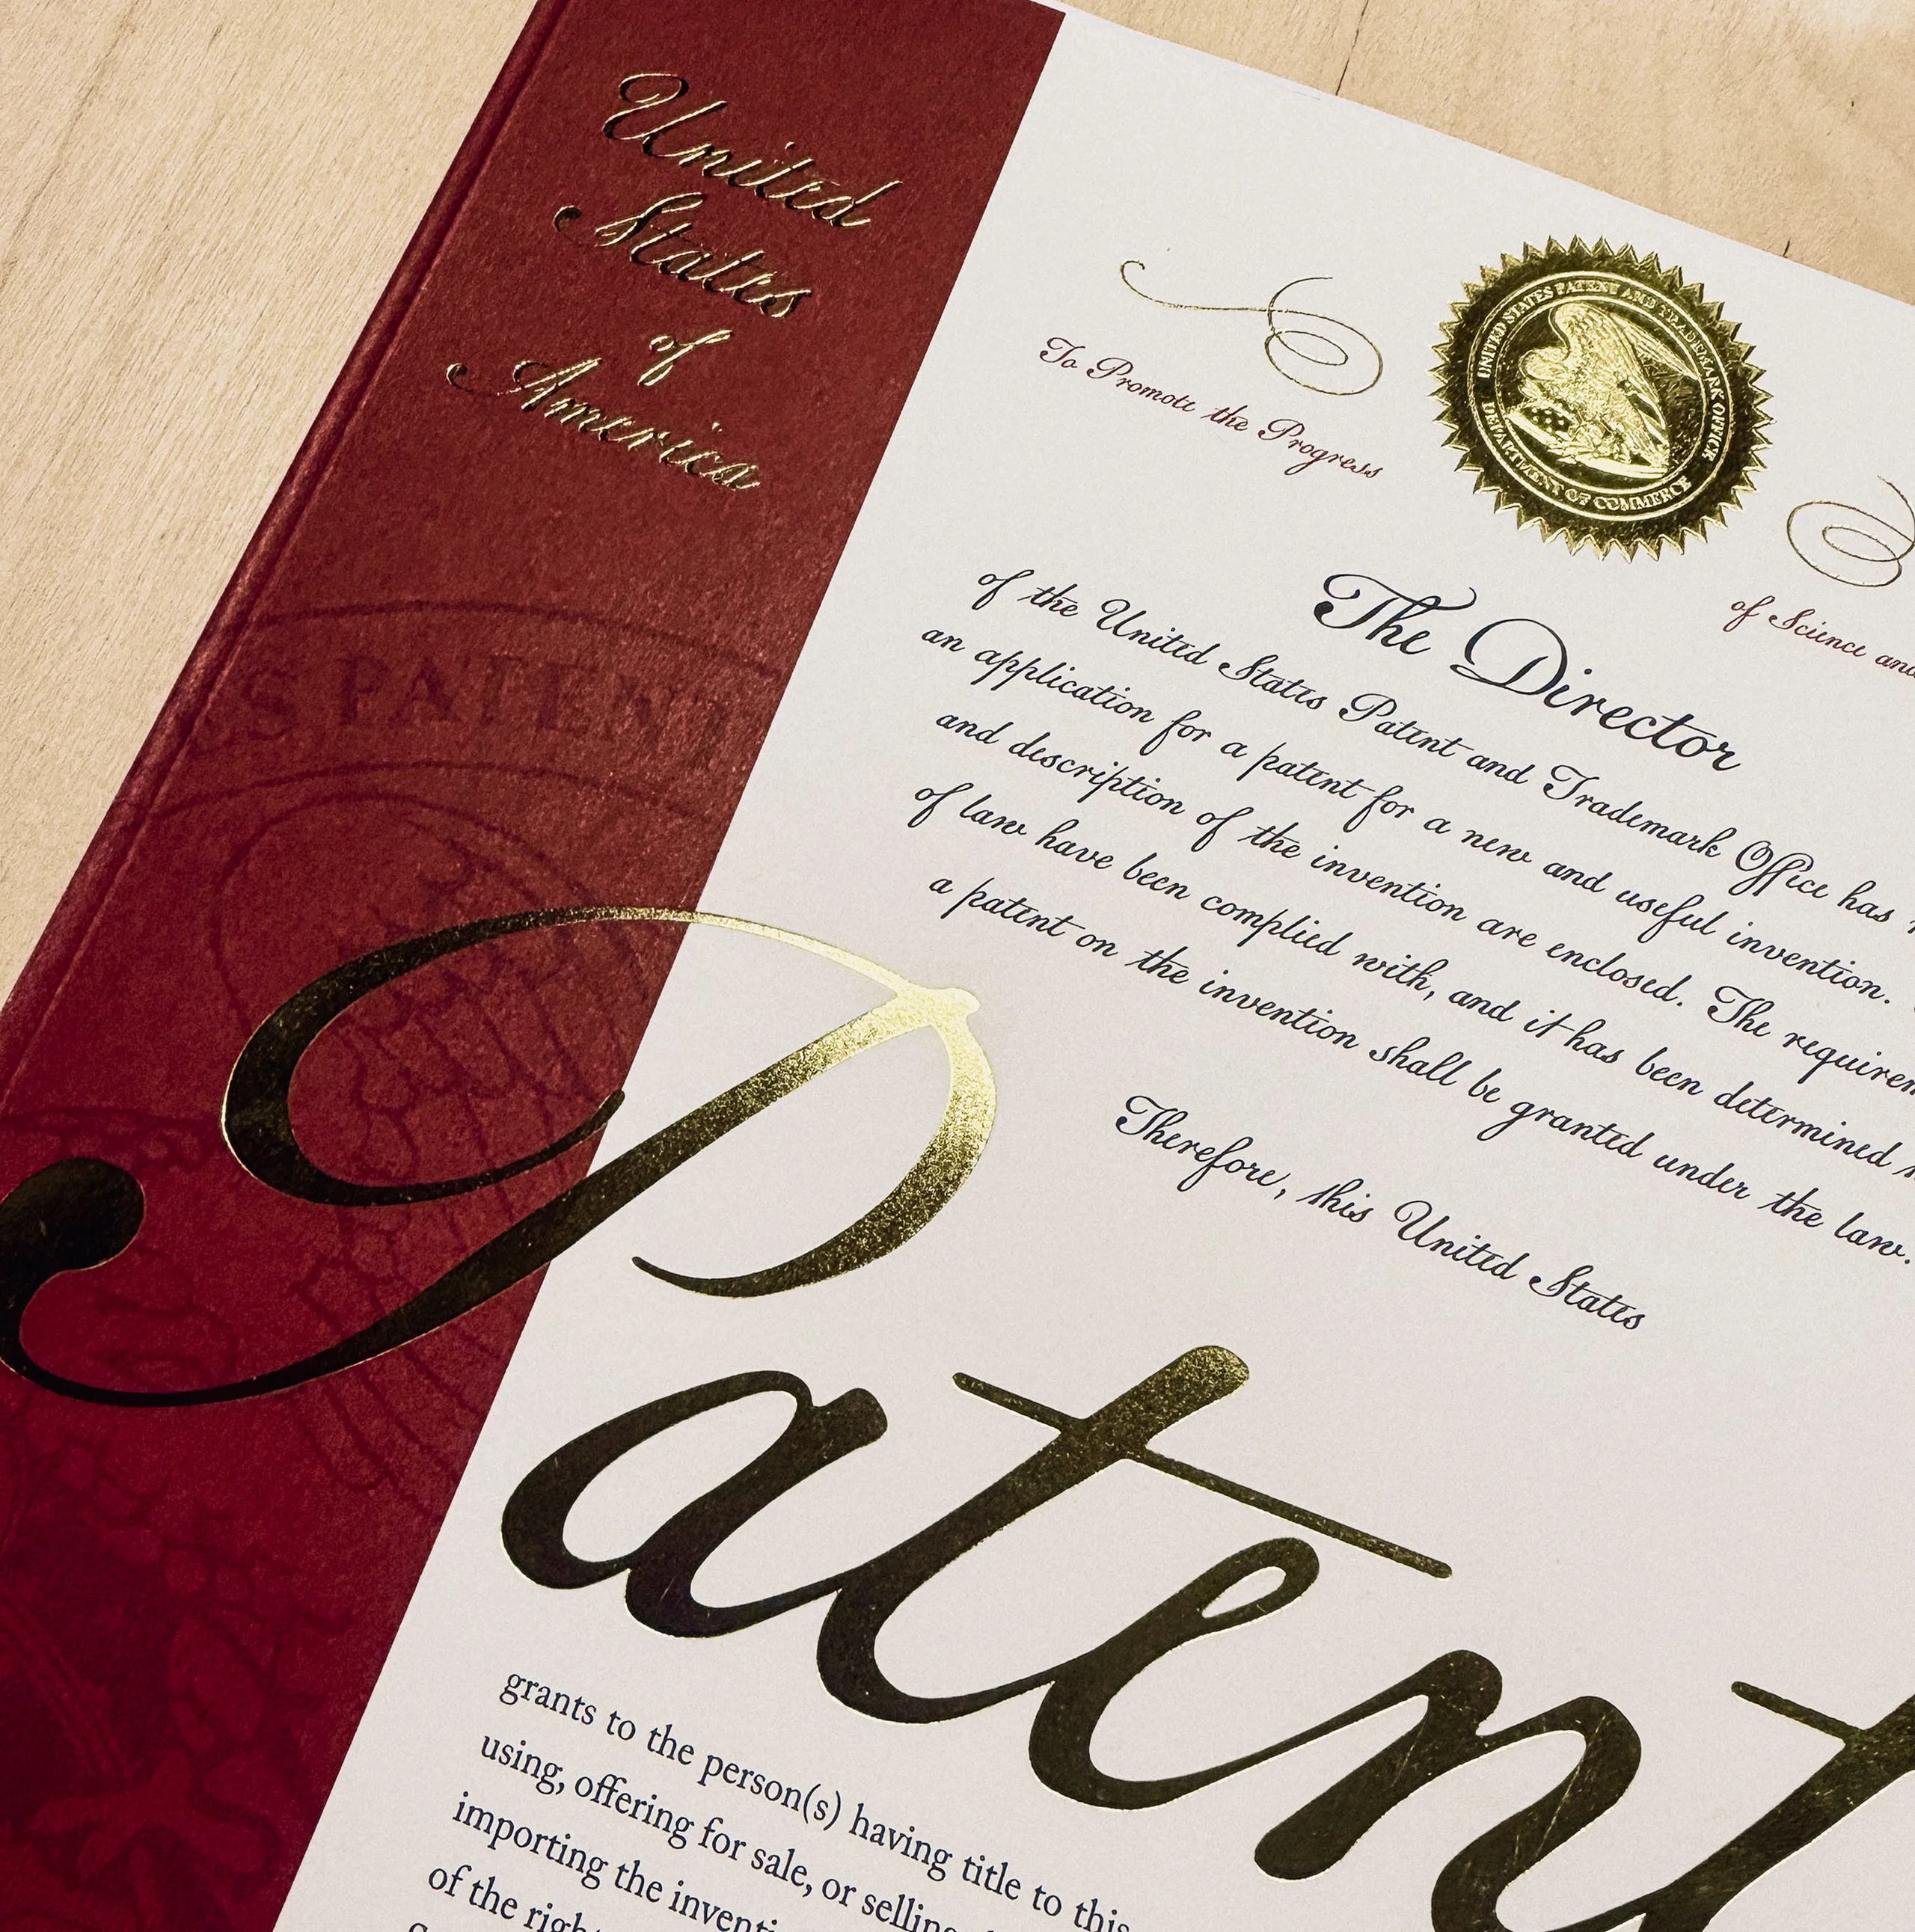 United
States
of
America
To Promote the Progress
UNITED STATES PATENT AND TRADEMARK OFFICE
DEPARTMENT OF COMMERCE
of Science and
The Director
of the United States Patent and Trademark Office has
an application for a patent for a new and useful invention.
and description of the invention are enclosed. The
of law have been complied with, and it has been determined
a patent on the invention shall be granted under the law.
Therefore, this United States
S PATENT
Patent
grants to the person(s) having title to this
using, offering for sale, or selling
importing the
of the